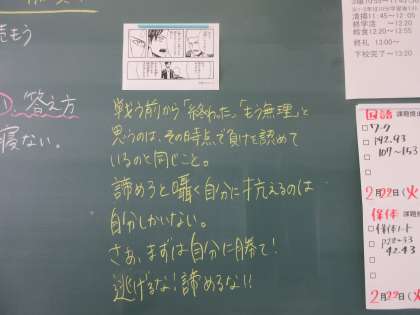 売もう
答え方
寝ない。
戦う前から「終わった」「もう無理」と
思うのは、その時点で負けを認めて
いるのと同じこと。
諦めろと囁く自分に抗えるのは
自分しかいない。
さあ、まずは自分に勝て！
逃げるな！諦めるな！！
清掃11:45～12:00
終学活 ～12:20
給食12:20～12:55
終礼 13:00～
下校完了～13:20
国語 課題提出
□ワーク
□P42.93
107～153
2月22日(火
保体 課題提
□保体ノート
□P28～33
42.43
2月22日(火